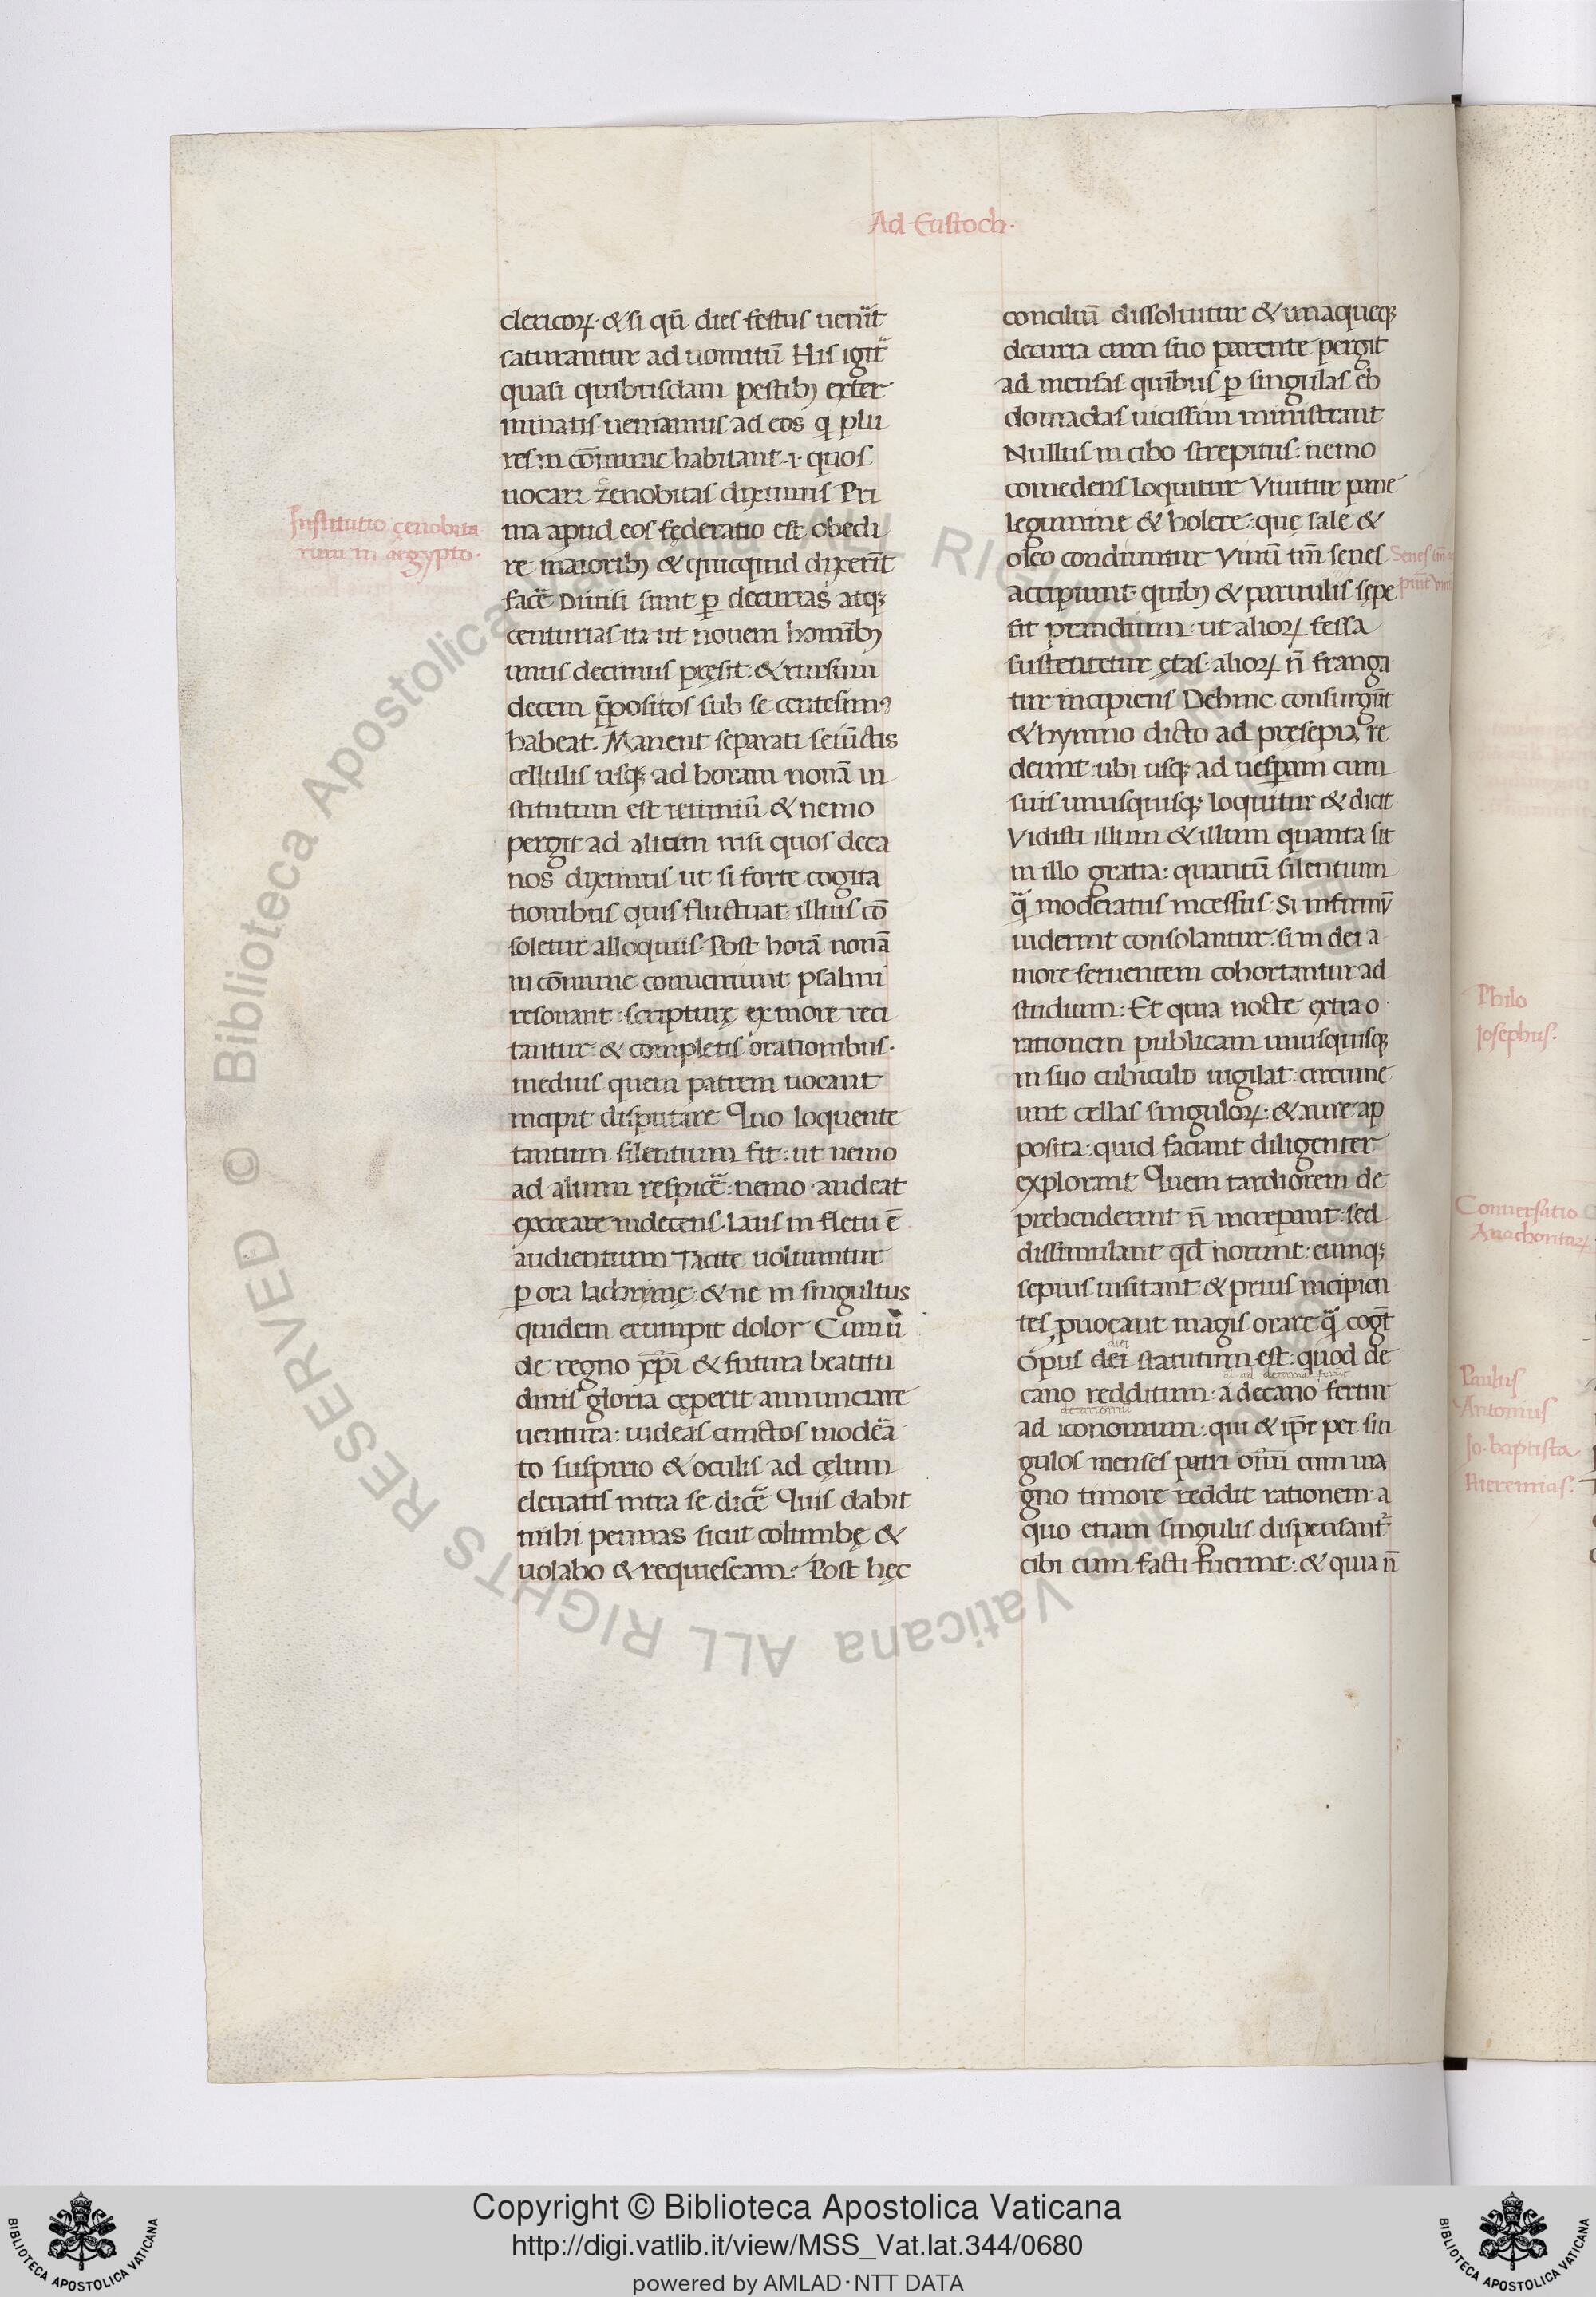 Ad Eustoch·
clericoꝝ· & si qn̄ dies festus uenit̃
saturantur ad uomitū His igit̃
quasi quibusdam pestibꝫ exter
minatis ueniamus ad eos q plu
res in cōmune habitant ·i· quos
uocari zenobitas diximus Pri
ma apud eos fęderatio est obedi
re maioribꝫ & quicquid dixerīt
facē Diuisi sunt ꝑ decurias atqꝫ
centurias ita ut nouem hominībꝫ
unus decimus pręsit· & rursum
decem p̄positos sub se centesimꝰ
habeat· Manent separati seiūctis
cellulis usqꝫ ad horam nonā in
stitutum est reuniū & nemo
pergit ad alium nisi quos deca
nos diximus ut si forte cogita
tionibus quis fluctuat illius cō
soletur alloquiis· Post horā nonā
in cōmune conueniunt psalmi
resonant· scripturę ex more reci
tantur· & completis orationibus·
medius quem patrem uocant
incipit disputare Quo loquente
tantum silentium fit: ut nemo
ad alium respicē: nemo audeat
excreare indecens· Laus in fletu ē
audientium Tacite uoluuntur
ꝑ ora lachrimę· & ne in singultus
quidem erumpit dolor Cum ū
de regno xp̄i & futura beatitu
dinis gloria cęperit annunciare
uentura: uideas cunctos modēa
to suspirio & oculis ad cęlum
eleuatis intra se dicē Quis dabit
mihi pennas sicut columbę &
uolabo & requiescam: Post hęc
Institutio cęnobita
rum in aegypto·
conciliū dissoluitur & unaqueqꝫ
decuria cum suo parente pergit
ad mensas· quibus ꝑ singulas eb
domadas uicissim ministrant
Nullus in cibo strepitus: nemo
comedens loquitur Viuitur pane
legumine & holere: que sale &
oleo condiuntur Vinū tm̄ senes
accipiunt· quibꝫ & paruulis sępe
fit prandium: ut alioꝝ fessa
sustentetur ętas· alioꝝ n̄ franga
tur incipiens Dehinc consurgūt
& hymno dicto ad presepia re
deunt: ubi usqꝫ ad uesperam cum
suis unusquisqꝫ loquitur & dicit
Vidisti illum & illum quanta sit
in illo gratia: quantū silentium
q̄ moderatus incessus· Si infirmū
uiderint consolantur· si in dei a
more feruentem cohortantur ad
studium: Et quia nocte extra o
rationem publicam unusquisqꝫ
in suo cubiculo uigilat: circume
unt cellas singuloꝝ: & aure ap
posita: quid faciant diligenter
explorant Quem tardiorem de
prehenderint n̄ increpant: sed
dissimulant qd̄ norunt: eumqꝫ
sepius uisitant· & prius incipien
tes ꝓuocant magis orare q̄ cogūt
Opus dei statutum est: quod de
cano redditum: a decano fertur
ad iconomum: qui & ip̄e per sin
gulos menses patri oīm cum ma
gno timore reddit rationem· a
quo etiam singulis dispensant̃
cibi cum facti fuerint: & quia n̄
Senes tm̄ ac
piūt uinū
diei
Philo
Josephus·
Conuersatio
Anachoritaꝝ
Paulus
Antonius
Jo· baptista
Hieremias·
© Biblioteca Apostolica Vaticana ALL RIGHTS RESERVED
Copyright © Biblioteca Apostolica Vaticana
http://digi.vatlib.it/view/MSS_Vat.lat.344/0680
powered by AMLAD·NTT DATA
BIBLIOTECA APOSTOLICA VATICANA
BIBLIOTECA APOSTOLICA VATICANA